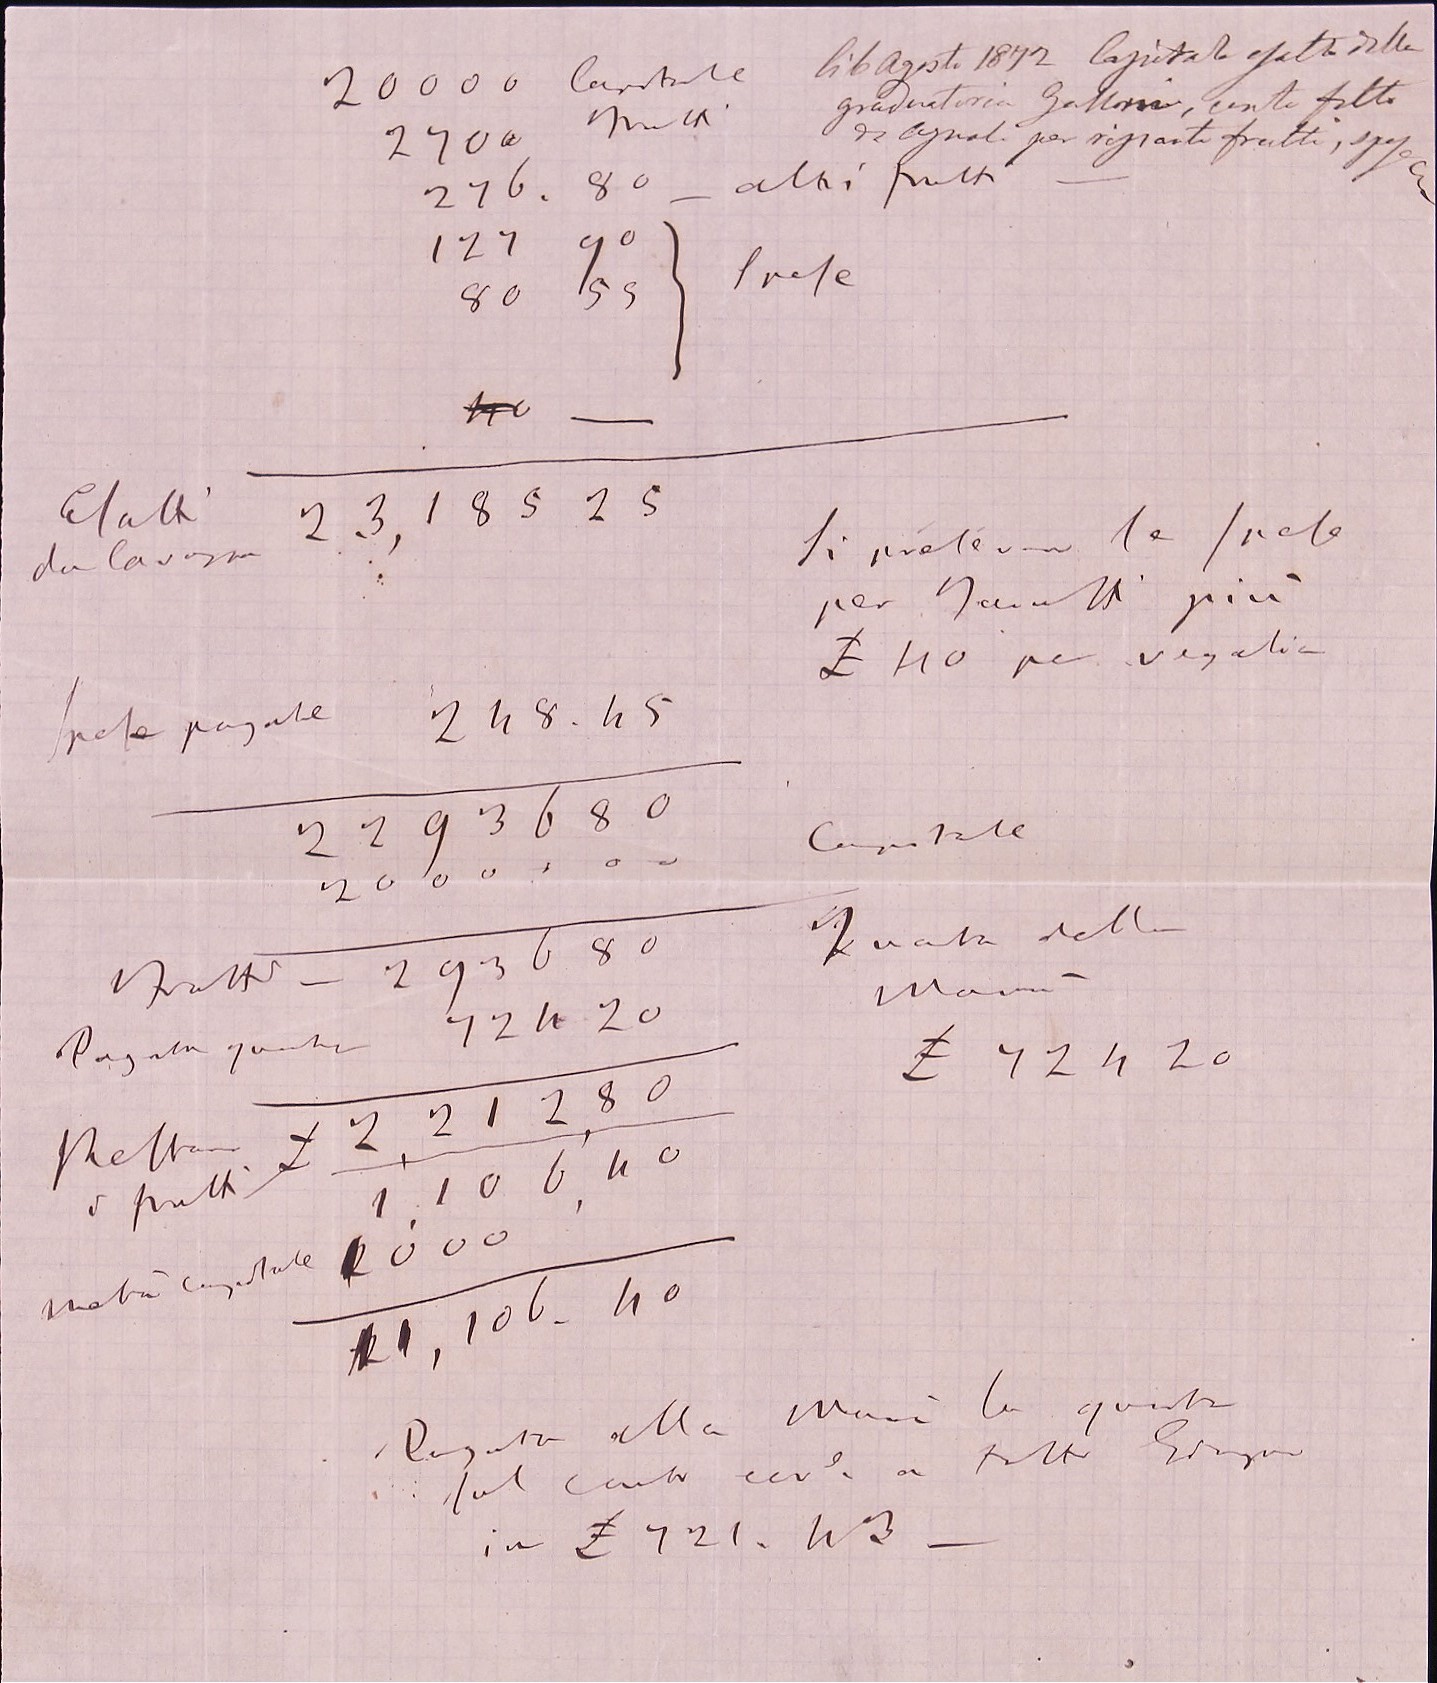 li 6 Agosto 1872 Capitale esatto dalla
graduatoria Galloni, conto fatto
da Cagnoli per riparto frutti, spese
20000 Capitale
2700 Frutti
276. 80 — altri frutti —
127 90
80 55 Spese
40 —
Esatti 23,185 25
da Cavazza
Si prelevano le Spese
per Zanotti più
£ 40 per regalia
Spese pagate 248. 45
22936 80
20000 00 Capitale
Frutti — 2936 80
Pagata quota 724 20
Quota della
Mamà
£ 724 20
Restano £ 2,212,80
i frutti 1,106,40
metà capitale 10000
11,106. 40
Pagata alla Mamà la quota
sul conto cor. a tutto Giugno
in £ 721. 43 —